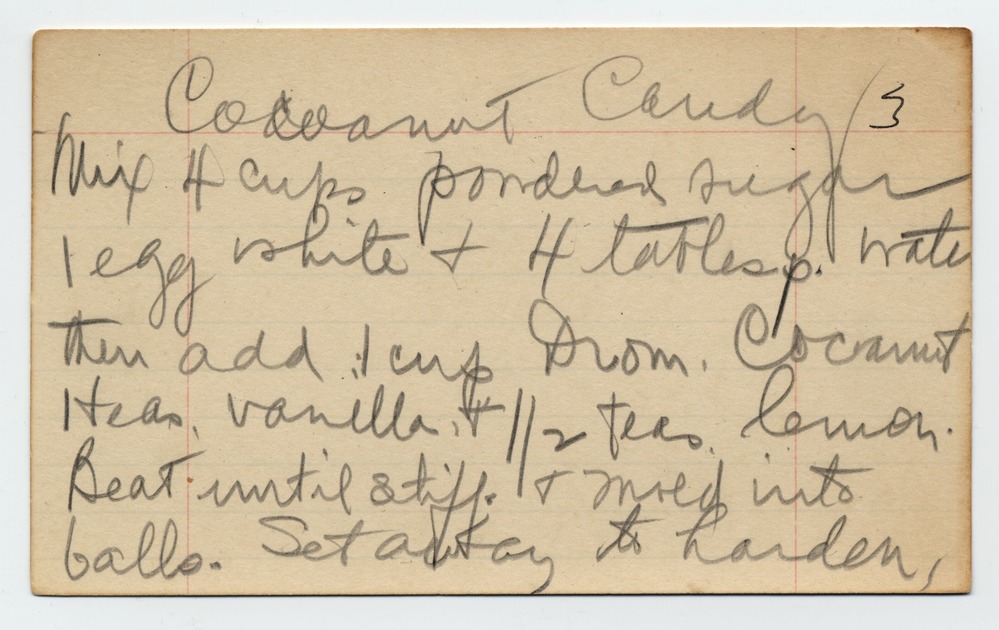 Cocoanut Candy 3
Mix 4 cups powdered sugar
1 egg white + 4 tablesp. wate
then add 1 cup Drom. Cocoanut
1 teas. vanilla. + 1/2 teas. lemon.
Beat until stiff. + mold into
balls. Set away to harden,